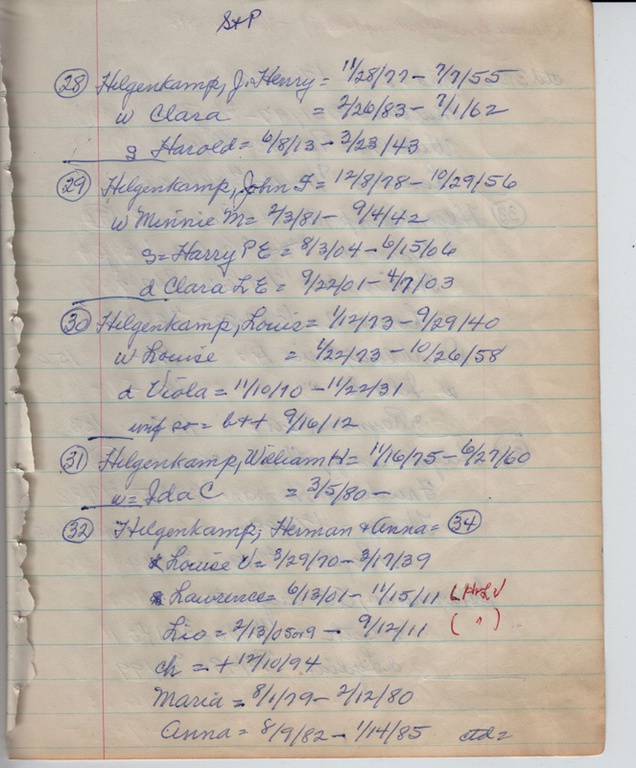 S+P
28 Hilgenkamp, J. Henry = 11/28/77 - 7/7/55
w Clara = 2/26/83 - 7/1/62
s Harold = 6/8/13 - 3/23/43
29 Hilgenkamp, John F = 12/8/78 - 10/29/56
w Minnie M = 2/3/81 - 9/4/42
s = Harry P E = 8/3/04 - 6/15/06
d Clara L E = 9/22/01 - 4/7/03
30 Hilgenkamp, Louis = 1/12/73 - 9/29/40
w Louise = 1/22/73 - 10/26/58
d Viola = 11/10/10 - 11/22/31
inf so = b++ 9/16/12
31 Hilgenkamp, William H = 11/16/75 - 6/27/60
w = Ida C = 3/5/80 -
32 Hilgenkamp, Herman + Anna = 34
Louise V = 3/29/70 - 3/17/39
s Lawrence = 6/13/01 - 11/15/11
Lio = 2/13/05or9 - 9/12/11 ( " )
ch = + 12/10/94
Maria = 8/1/79 - 2/12/80
Anna = 8/9/82 - 1/14/85 ctd =